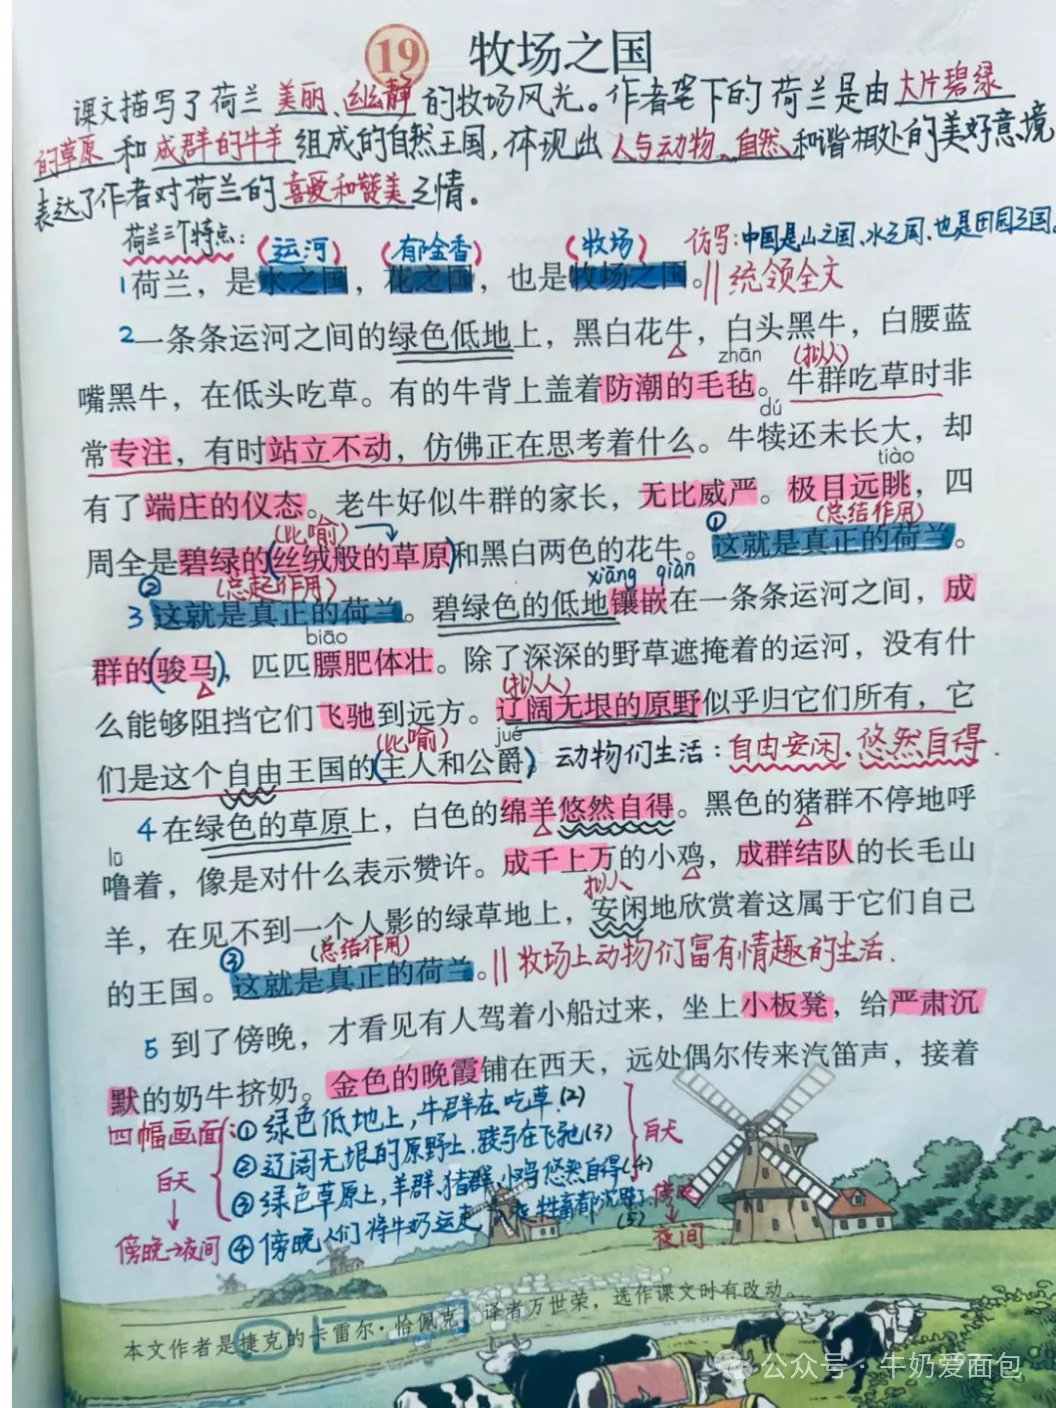 19 牧场之国
课文描写了荷兰美丽、幽静的牧场风光。作者笔下的荷兰是由大片碧绿
的草原和成群的牛羊组成的自然王国，体现出人与动物、自然和谐相处的美好意境
表达了作者对荷兰的喜爱和赞美之情。
荷兰三个特点：(运河) (有郁金香) (牧场) 仿写：中国是山之国、水之国、也是田园之国。
1荷兰，是水之国，花之国，也是牧场之国。||统领全文
2一条条运河之间的绿色低地上，黑白花牛，白头黑牛，白腰蓝
zhān (拟人)
嘴黑牛，在低头吃草。有的牛背上盖着防潮的毛毡。牛群吃草时非
dú
常专注，有时站立不动，仿佛正在思考着什么。牛犊还未长大，却
tiào
有了端庄的仪态。老牛好似牛群的家长，无比威严。极目远眺，四
(比喻) ① (总结作用)
周全是碧绿的(丝绒般的草原)和黑白两色的花牛。这就是真正的荷兰。
② (总起作用) xiāng qiàn
3这就是真正的荷兰。碧绿色的低地镶嵌在一条条运河之间，成
biāo
群的(骏马)，匹匹膘肥体壮。除了深深的野草遮掩着的运河，没有什
(拟人)
么能够阻挡它们飞驰到远方。辽阔无垠的原野似乎归它们所有，它
(比喻) jué
们是这个自由王国的(主人和公爵)。动物们生活：自由安闲、悠然自得.
4在绿色的草原上，白色的绵羊悠然自得。黑色的猪群不停地呼
lū
噜着，像是对什么表示赞许。成千上万的小鸡，成群结队的长毛山
拟人
羊，在见不到一个人影的绿草地上，安闲地欣赏着这属于它们自己
③ (总结作用)
的王国。这就是真正的荷兰。||牧场上动物们富有情趣的生活.
5到了傍晚，才看见有人驾着小船过来，坐上小板凳，给严肃沉
默的奶牛挤奶。金色的晚霞铺在西天，远处偶尔传来汽笛声，接着
四幅画面：①绿色低地上，牛群在吃草(2) 白天
白天 ②辽阔无垠的原野上，骏马在飞驰(3)
③绿色草原上，羊群、猪群、小鸡悠然自得(4)
傍晚→夜间 ④傍晚人们将牛奶运走 牲畜都沉默了(5) 夜间
本文作者是捷克的卡雷尔·恰佩克，译者万世荣，选作课文时有改动。
公众号·牛奶爱面包